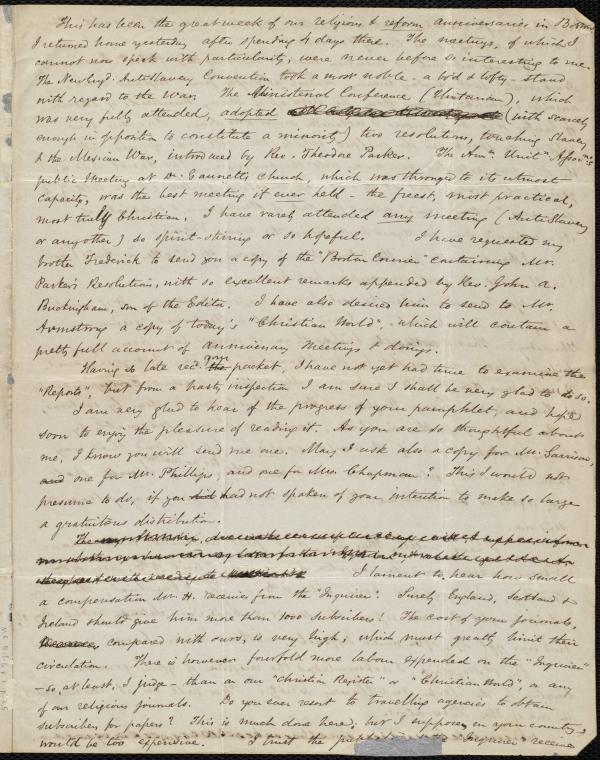 This has been the great week of our religious & reform anniversaries in Boston.
I returned home yesterday after spending 4 days there. The meetings, of which I
cannot now speak with particularity, were never before so interesting to me.
The New Engd. AntiSlavery Convention took a most noble - a bold & lofty - stand
with regard to the War. The Ministerial Conference (Unitarian), which
was very fully attended, adopted (with scarcely
enough in opposition to constitute a minority) two resolutions, touching Slavery
& the Mexican War, introduced by Rev. Theodore Parker. The Amn. Unitn. Assocn's
public Meeting at Dr. Gannett's Church, which was thronged to its utmost
capacity, was the best meeting it ever held - the freest, most practical,
most truly Christian. I have rarely attended any meeting (AntiSlavery
or any other) so spirit-stirring or so hopeful. I have requested my
brother Frederick to send you a copy of the "Boston Courier" containing Mr.
Parker's Resolutions, with so excellent remarks appended by Rev. John A.
Buckingham, son of the Editor. I have also desired him to send to Mr.
Armstrong a copy of today's "Christian World", which will contain a
pretty full account of anniversary meetings & doings.
Having so late recd. your packet, I have not yet had time to examine the
"Reports", but from a hasty inspection I am sure I shall be very glad to do so.
I am very glad to hear of the progress of your pamphlet, and hope
soon to enjoy the pleasure of reading it. As you are so thoughtful about
me, I know you will send me one. May I ask also a copy for Mr. Garrison,
and one for Mr. Phillips, and one for Mrs. Chapman? This I would not
presume to do, if you had not spoken of your intention to make so large
a gratuitous distribution.
I lament to hear how small
a compensation Mr. H. receives from the "Inquirer". Surely England, Scotland &
Ireland should give him more than 1000 subscribers! The cost of your journals,
compared with ours, is very high; which must greatly limit their
circulation. There is however fourfold more labour expended on the "Inquirer"
- so, at least, I judge - than on our "Christian Register" or "Christian World", or any
of our religious journals. Do you ever resort to travelling agencies to obtain
subscribers for papers? This is much done here; but I suppose in your country
would be too expensive. I trust the "Inquirer" receive